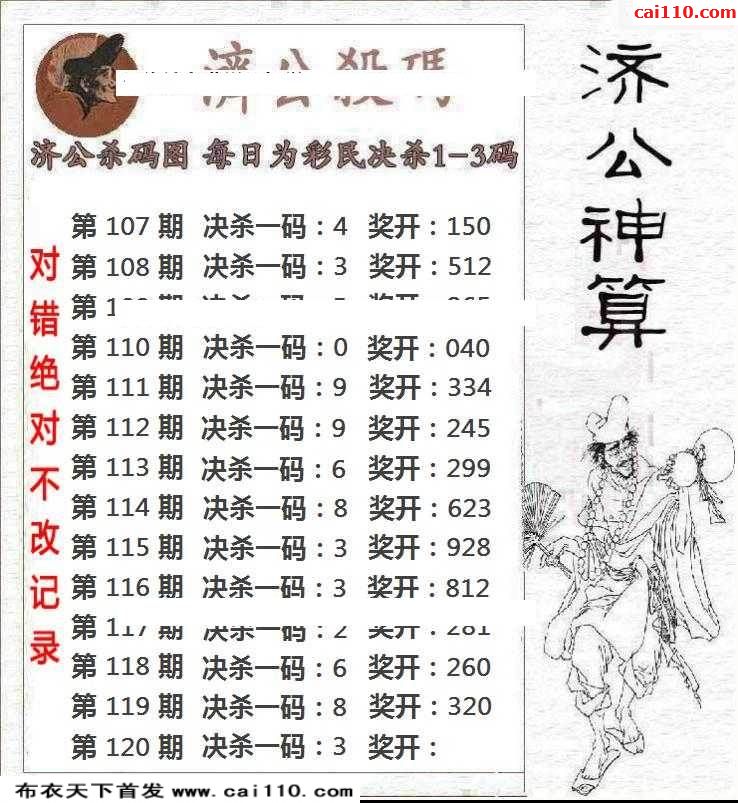 cai110.com
濟公殺碼
济公杀码图 每日为彩民决杀1-3码
第 107 期 决杀一码：4 奖开：150
第 108 期 决杀一码：3 奖开：512
第 110 期 决杀一码：0 奖开：040
第 111 期 决杀一码：9 奖开：334
第 112 期 决杀一码：9 奖开：245
第 113 期 决杀一码：6 奖开：299
第 114 期 决杀一码：8 奖开：623
第 115 期 决杀一码：3 奖开：928
第 116 期 决杀一码：3 奖开：812
第 117 期 决杀一码：2 奖开：281
第 118 期 决杀一码：6 奖开：260
第 119 期 决杀一码：8 奖开：320
第 120 期 决杀一码：3 奖开：
对错绝对不改记录
济公神算
布衣天下首发 www.cai110.com